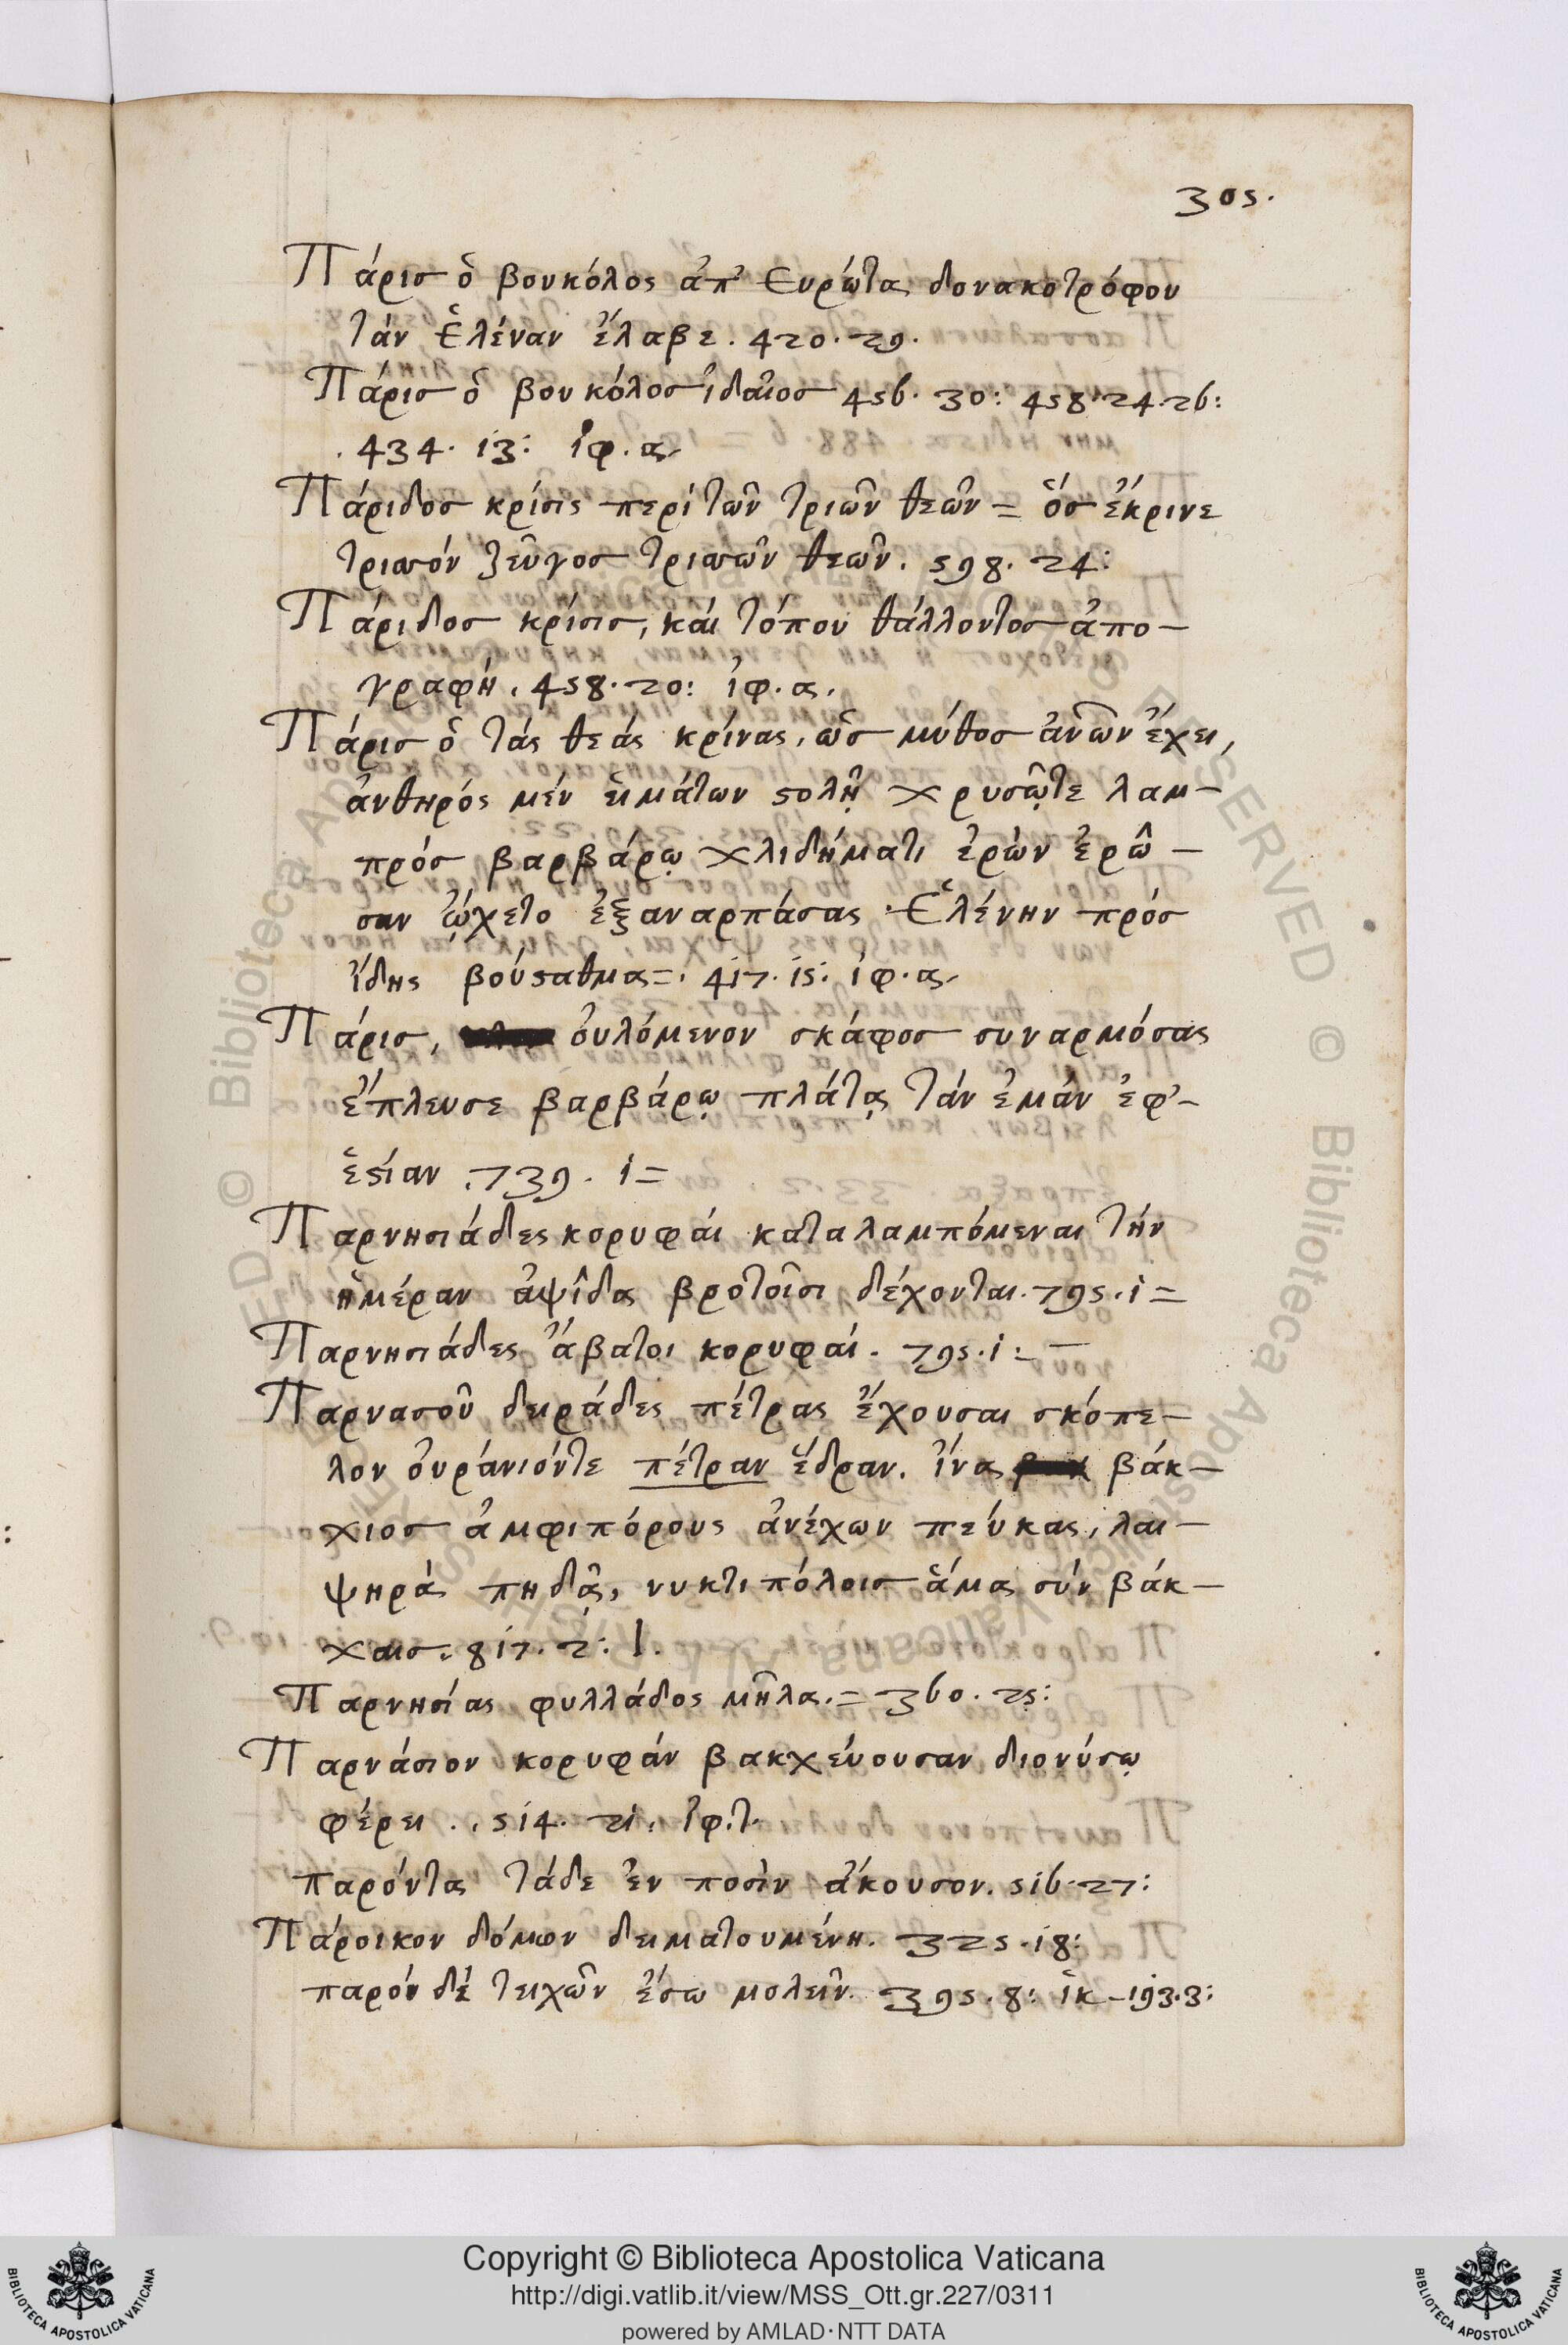 305.
Πάρις ὁ βουκόλος ἀπ' Ευρώτα δονακοτρόφου
τὰν Ἑλέναν ἔλαβε. 420. 29.
Πάρις ὁ βουκόλος ἰδαῖος 456. 30: 458. 24. 26:
. 434. 13: ἰφ. α.
Πάριδος κρίσις περὶ τῶν τριῶν θεῶν = ὅς ἔκρινε
τρισσόν ζεῦγος τρισσῶν θεῶν. 598. 24:
Πάριδος κρίσις, καὶ τόπου θάλλοντος ἀπο-
γραφή. 458. 20: ἰφ. α.
Πάρις ὁ τὰς θεάς κρίνας, ὡς μύθος ἀνῶν ἔχει,
ἀνθηρός μέν εἱμάτων ϛολῇ χρυσῷτε λαμ-
πρός βαρβάρῳ χλιδήματι ἐρὼν ἐρῶ-
σαν ᾤχετο ἐξαναρπάσας Ἑλένην πρός
ἴδης βούϛαθμα =. 417. 15: ἰφ. α.
Πάρις, ὀυλόμενον σκάφος συναρμόσας
ἔπλευσε βαρβάρῳ πλάτᾳ τάν ἐμάν ἐφ'-
ἑϛίαν. 739. 1 =
Παρνησιάδες κορυφάι καταλαμπόμεναι τήν
ἡμέραν ἁψῖδα βροτοῖσι δέχονται. 795. 1 =
Παρνησιάδες ἄβατοι κορυφαί. 795. 1: -
Παρνασοῦ δειράδες πέτρας ἔχουσαι σκόπε-
λον ὀυράνιόντε πέτραν ἕδραν. ἵνα βάκ-
χιος ἀμφιπόρους ἀνέχων πεύκας, λαι-
ψηρὰ πηδᾷ, νυκτιπόλοις ἅμα σύν βάκ-
χαις. 817. 2: Ι.
Παρνησίας φυλλάδος μῆλα. = 360. 25:
Παρνάσιον κορυφάν βακχεύουσαν διονύσῳ
φέρει. . 514. 21. ἰφ. τ.
παρόντα τάδε ἐν ποσὶν ἄκουσον. 516. 27:
Πάροικον δόμων δειματουμένη. 325. 18:
παρόν δέ τειχῶν ἔσω μολεῖν. 395. 8: ἱκ - 193. 3:
Copyright © Biblioteca Apostolica Vaticana
http://digi.vatlib.it/view/MSS_Ott.gr.227/0311
powered by AMLAD·NTT DATA